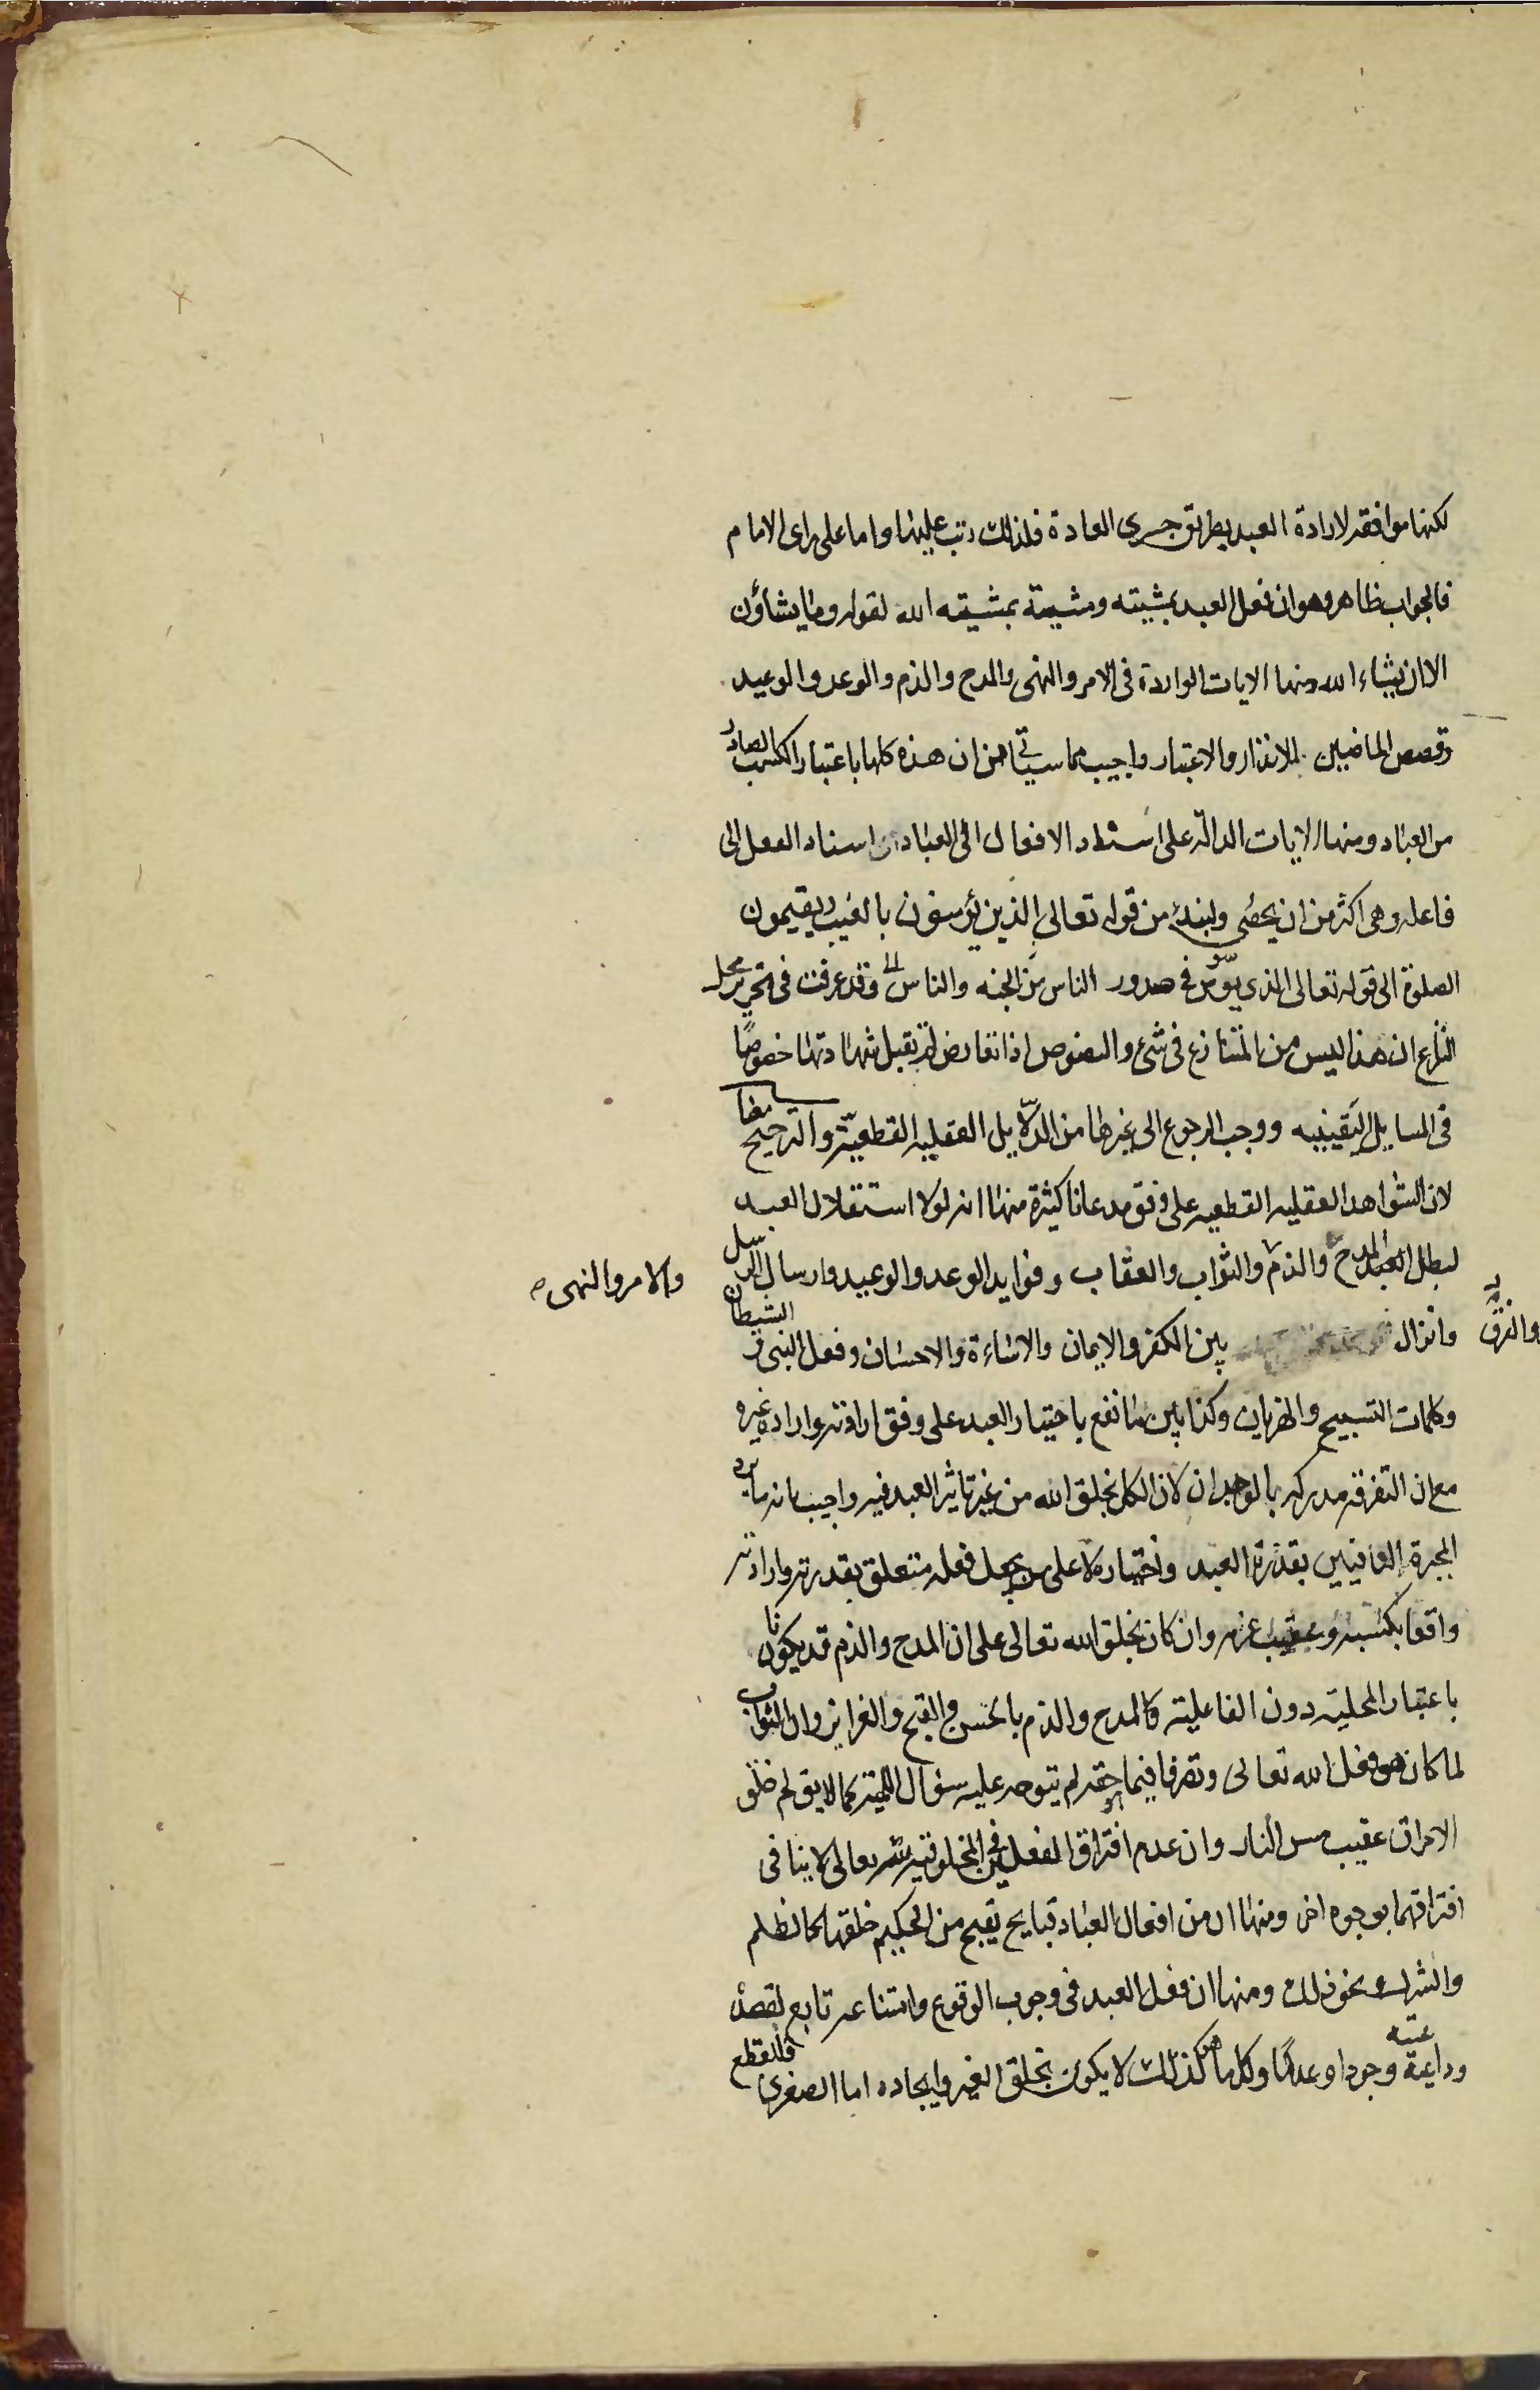 لكنها موافقه لارادة العبد بطريق جرى العادة فلذلك رتب عليها واما على راى الامام
فالجواب ظاهر وهو ان فعل العبد بمشيته ومشيته بمشيته الله لقوله وما يشاؤن
الا ان يشاء الله ومنها الايات الواردة فى الامر والنهى والمدح والذم والوعد والوعيد
وقصص الماضين للانذار والاعتبار واجيب مما سياتى من ان هذه كلها باعتبار الكسب الصادر
من العباد ومنها الايات الدالة على اسناد الافعال الى العباد اسناد الفعل الى
فاعله وهى اكثر من ان يحصى ولنبدء من قوله تعالى الذين يؤمنون بالغيب ويقيمون
الصلوة الى قوله تعالى الذى يوسوس فى صدور الناس من الجنه والناس وقد عرفت فى تحرير محل
النزاع ان هذا ليس من المتنازع فى شئ والنصوص اذا تعارض لم تقبل شهادتها خصوصًا
فى المسايل اليقينيه ووجب الرجوع الى غيرها من الدلايل العقليه القطعية والترجيح معنا
لان الشواهد العقليه القطعيه على وفق مدعانا كثيرة منها انه لولا استقلال العبد
لبطل المدح والذم والثواب والعقاب وفوايد الوعد والوعيد وارسال الرسل
والامر والنهى
وانزال بين الكفر والايمان والاساءة والاحسان وفعل النبى والشيطان
والفرق
وكلمات التسبيح والهذيان وكذا بين ما نقع باختيار العبد على وفق ارادته وارادة غيره
مع ان التفرقه مدركه بالوجدان لان الكل بخلق الله من غير تاثير العبد فيه واجيب بانه ما يرد
المجبرة النافيين بقدرة العبد واختياره لا على من يجعل فعله متعلق بقدرته وارادته
واقعا بكسبه وعقيب عزمه وان كان بخلق الله تعالى على ان المدح والذم قد يكونا
باعتبار المحلية دون الفاعلية كالمدح والذم بالحسن والقبح والغرايز وان الثواب
لما كان هو فعل الله تعالى وتصرفا فيما هو حقه لم يتوجه عليه سؤال اللمية كما لا يق لم خلق
الاحراق عقيب مس النار وان عدم افتراق الفعلين فى المخلوقية لله تعالى لا ينافى
افتراقهما بوجوه اخر ومنها ان من افعال العباد قبايح يقبح من الحكيم خلقها كالظلم
والشرك ونحو ذلك ومنها ان فعل العبد فى وجوب الوقوع وامتناعه تابع لقصده
وداعيته وجودا وعدمًا وكل ما هو كذلك لا يكون بخلق الغير وايجاده اما الصغرى فللقطع